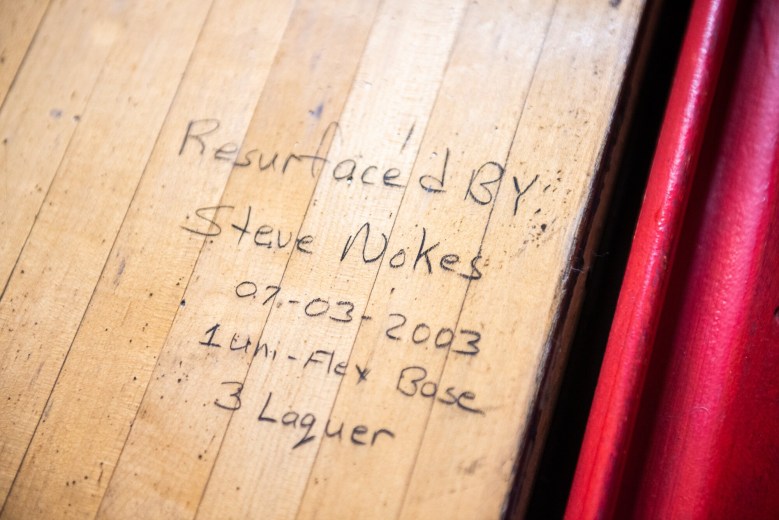 Resurfaced BY
Steve Nokes
07-03-2003
1 Uni-Flex Base
3 Laquer